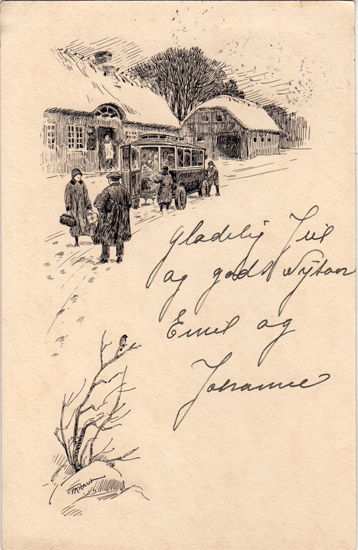 Gladelig Jul
og godt Nytaar
Emil og
Johanne